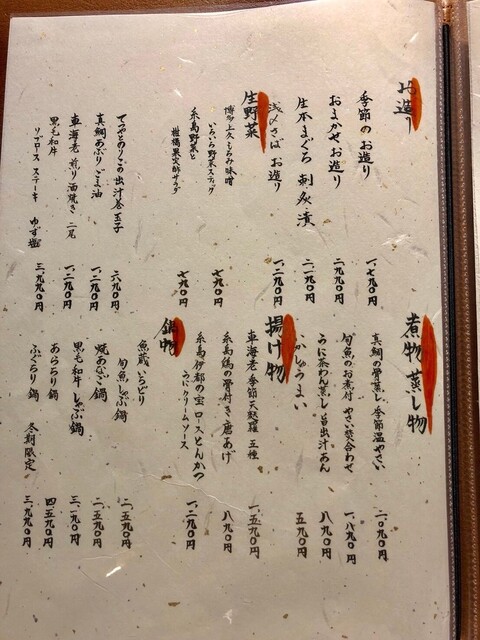 お造り
季節のお造り
一、七九〇円
おまかせお造り
二、九九〇円
生本まぐろ 刺 炙 漬
二、一九〇円
浅〆さば お造り
一、二九〇円
生野菜
博多上久もろみ味噌
いろいろ野菜スティック
七九〇円
糸島野菜と
柑橘果実酢サラダ
七九〇円
てつやとのりこの出汁巻玉子
六九〇円
真鯛あぶりごま油
一、二九〇円
車海老 煎り酒焼き 二尾
一、二九〇円
黒毛和牛
リブロースステーキ ゆず塩
三、九九〇円
煮物 蒸し物
真鯛の骨蒸し 季節温やさい
二、〇九〇円
旬魚のお煮付 やさい焚合わせ
一、八九〇円
うに茶わん蒸し 旨出汁あん
八九〇円
かしゅうまい
五九〇円
揚げ物
車海老 季節天麩羅 五種
一、五九〇円
糸島鶏の骨付き唐あげ
八九〇円
糸島伊都の宝 ロースとんかつ
うにクリームソース
一、二九〇円
鍋物
魚蔵いろどり
旬魚しゃぶ鍋
二、五九〇円
焼あなご鍋
二、五九〇円
黒毛和牛しゃぶ鍋
三、一九〇円
あらちり鍋
四、五九〇円
ふぐちり鍋 冬期限定
三、九九〇円